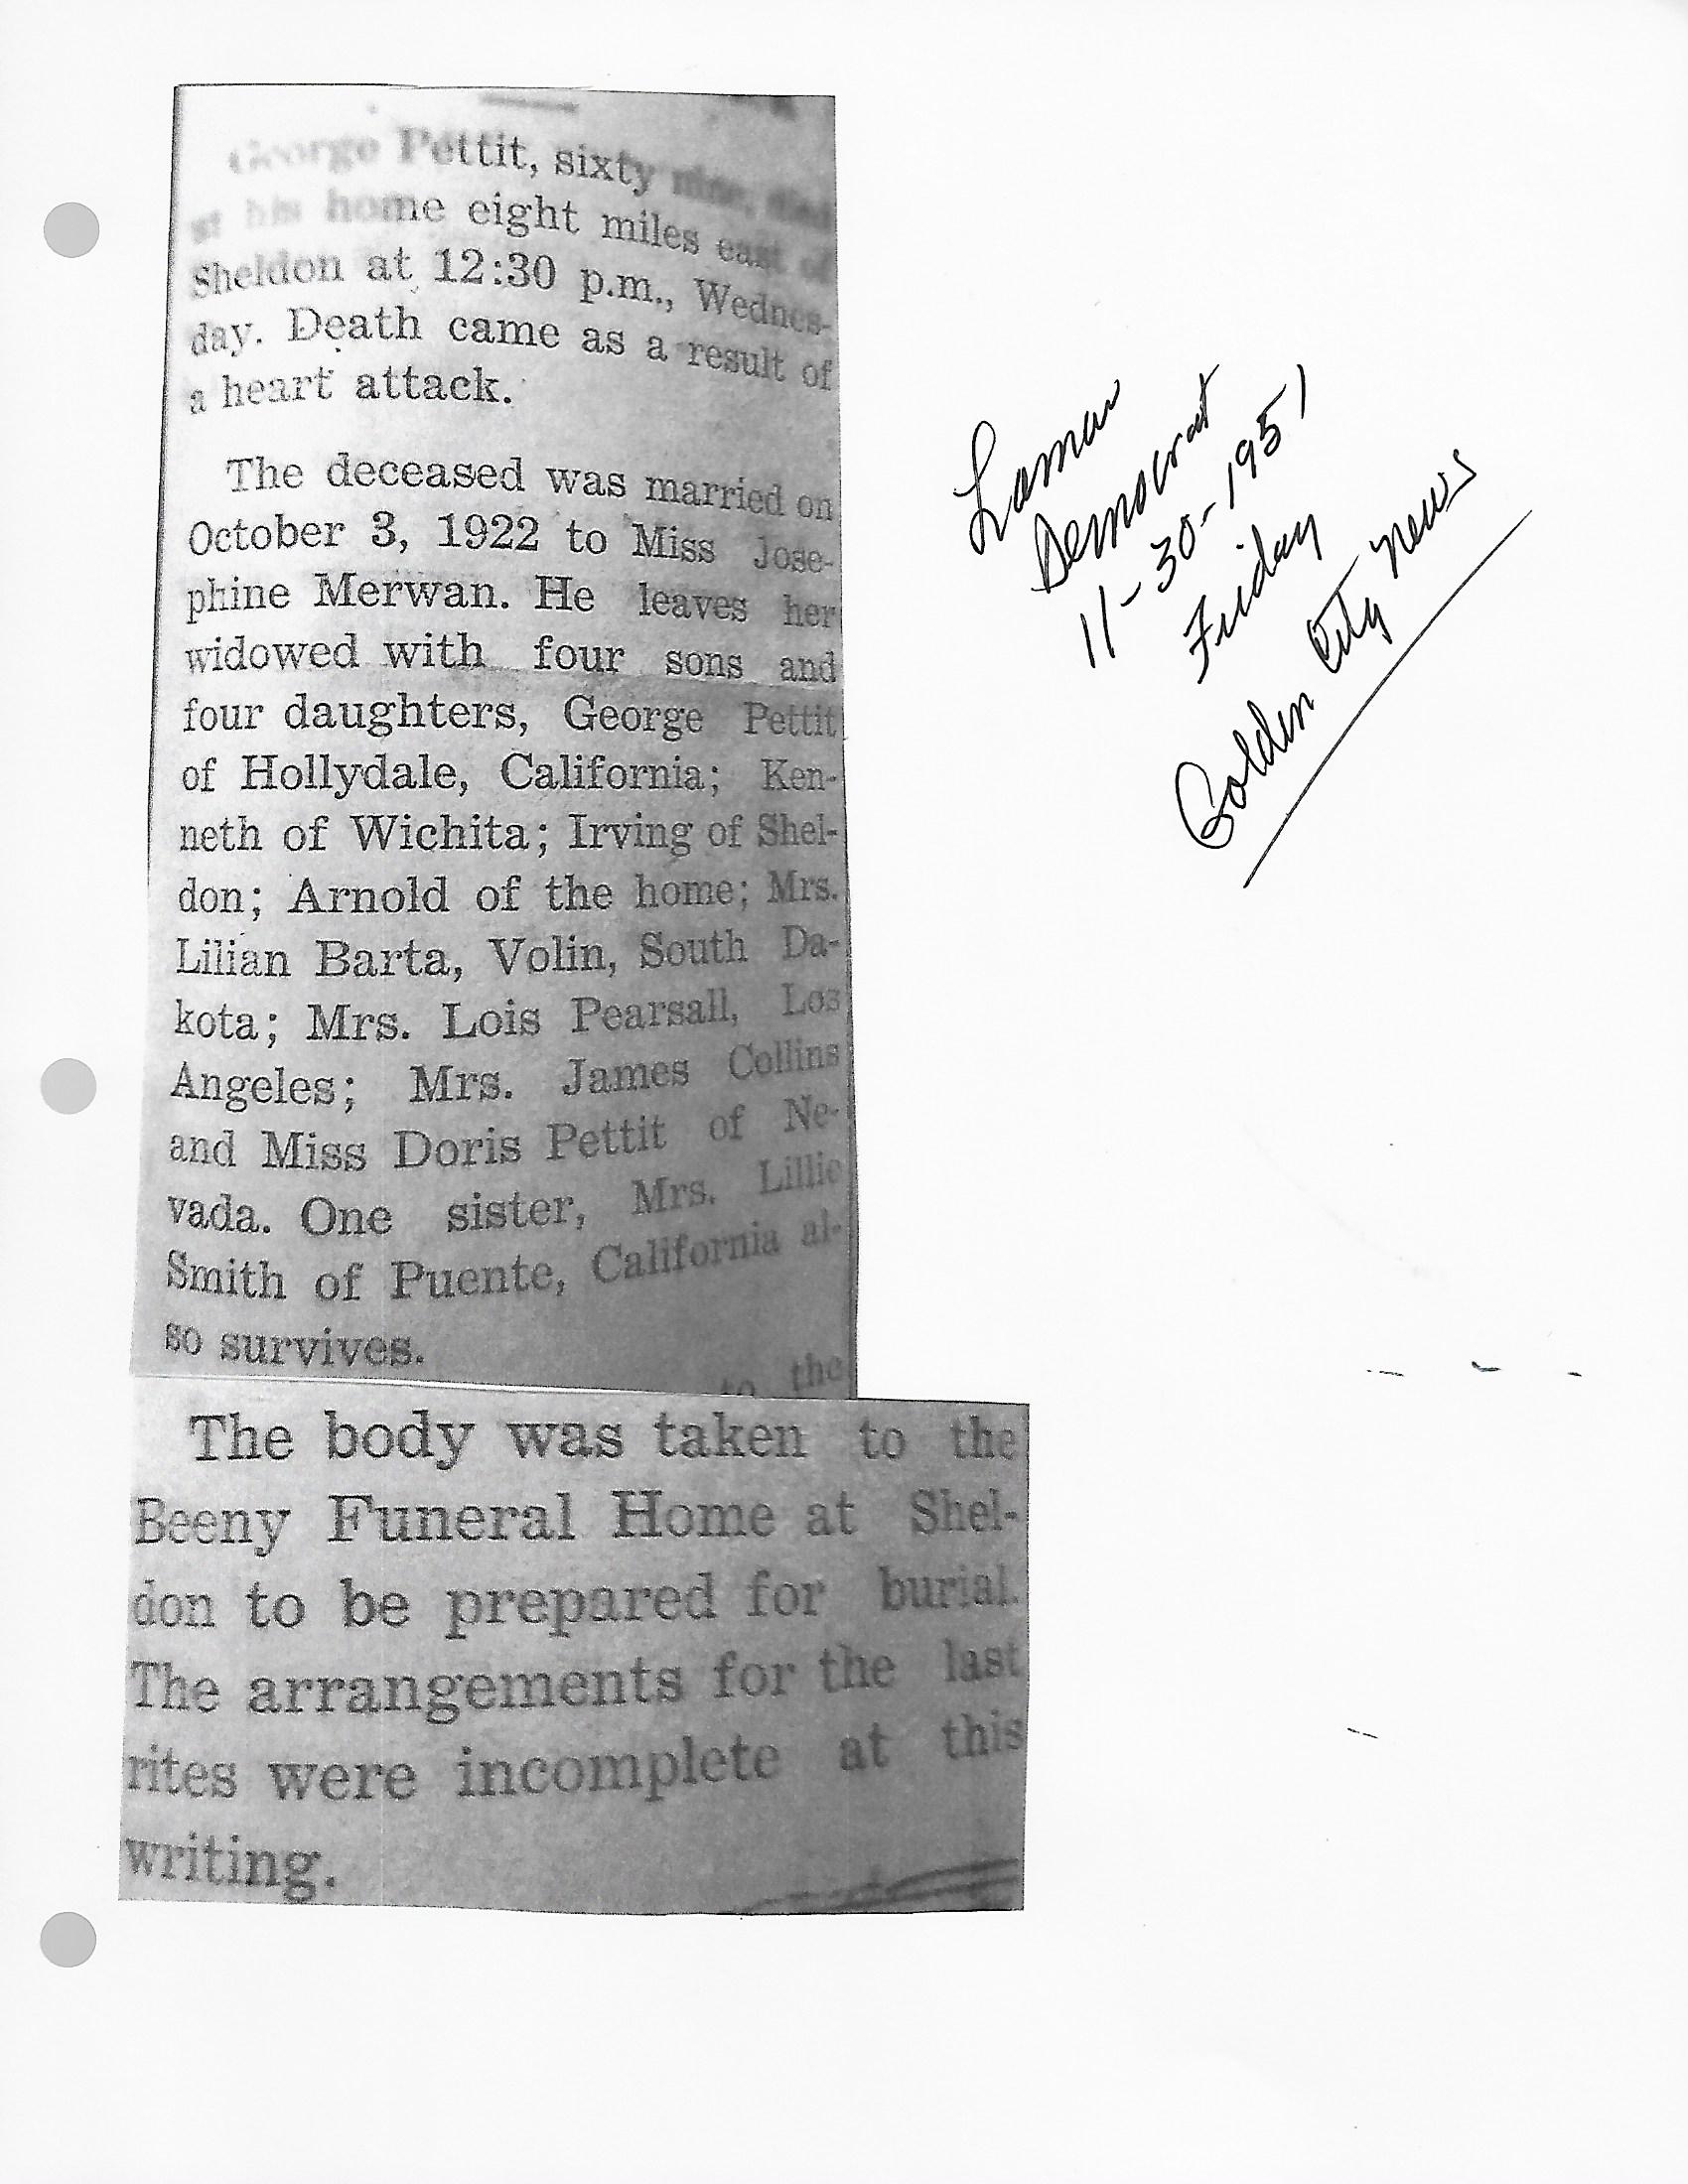 George Pettit, sixty nine, died
at his home eight miles east of
Sheldon at 12:30 p.m., Wednes-
day. Death came as a result of
a heart attack.
The deceased was married on
October 3, 1922 to Miss Jose-
phine Merwan. He leaves her
widowed with four sons and
four daughters, George Pettit
of Hollydale, California; Ken-
neth of Wichita; Irving of Shel-
don; Arnold of the home; Mrs.
Lilian Barta, Volin, South Da-
kota; Mrs. Lois Pearsall, Los
Angeles; Mrs. James Collins
and Miss Doris Pettit of Ne-
vada. One sister, Mrs. Lillie
Smith of Puente, California al-
so survives.
to the
The body was taken to the
Beeny Funeral Home at Shel-
don to be prepared for burial.
The arrangements for the last
rites were incomplete at this
writing.
Lamar
Democrat
11-30-1951
Friday
Golden City News